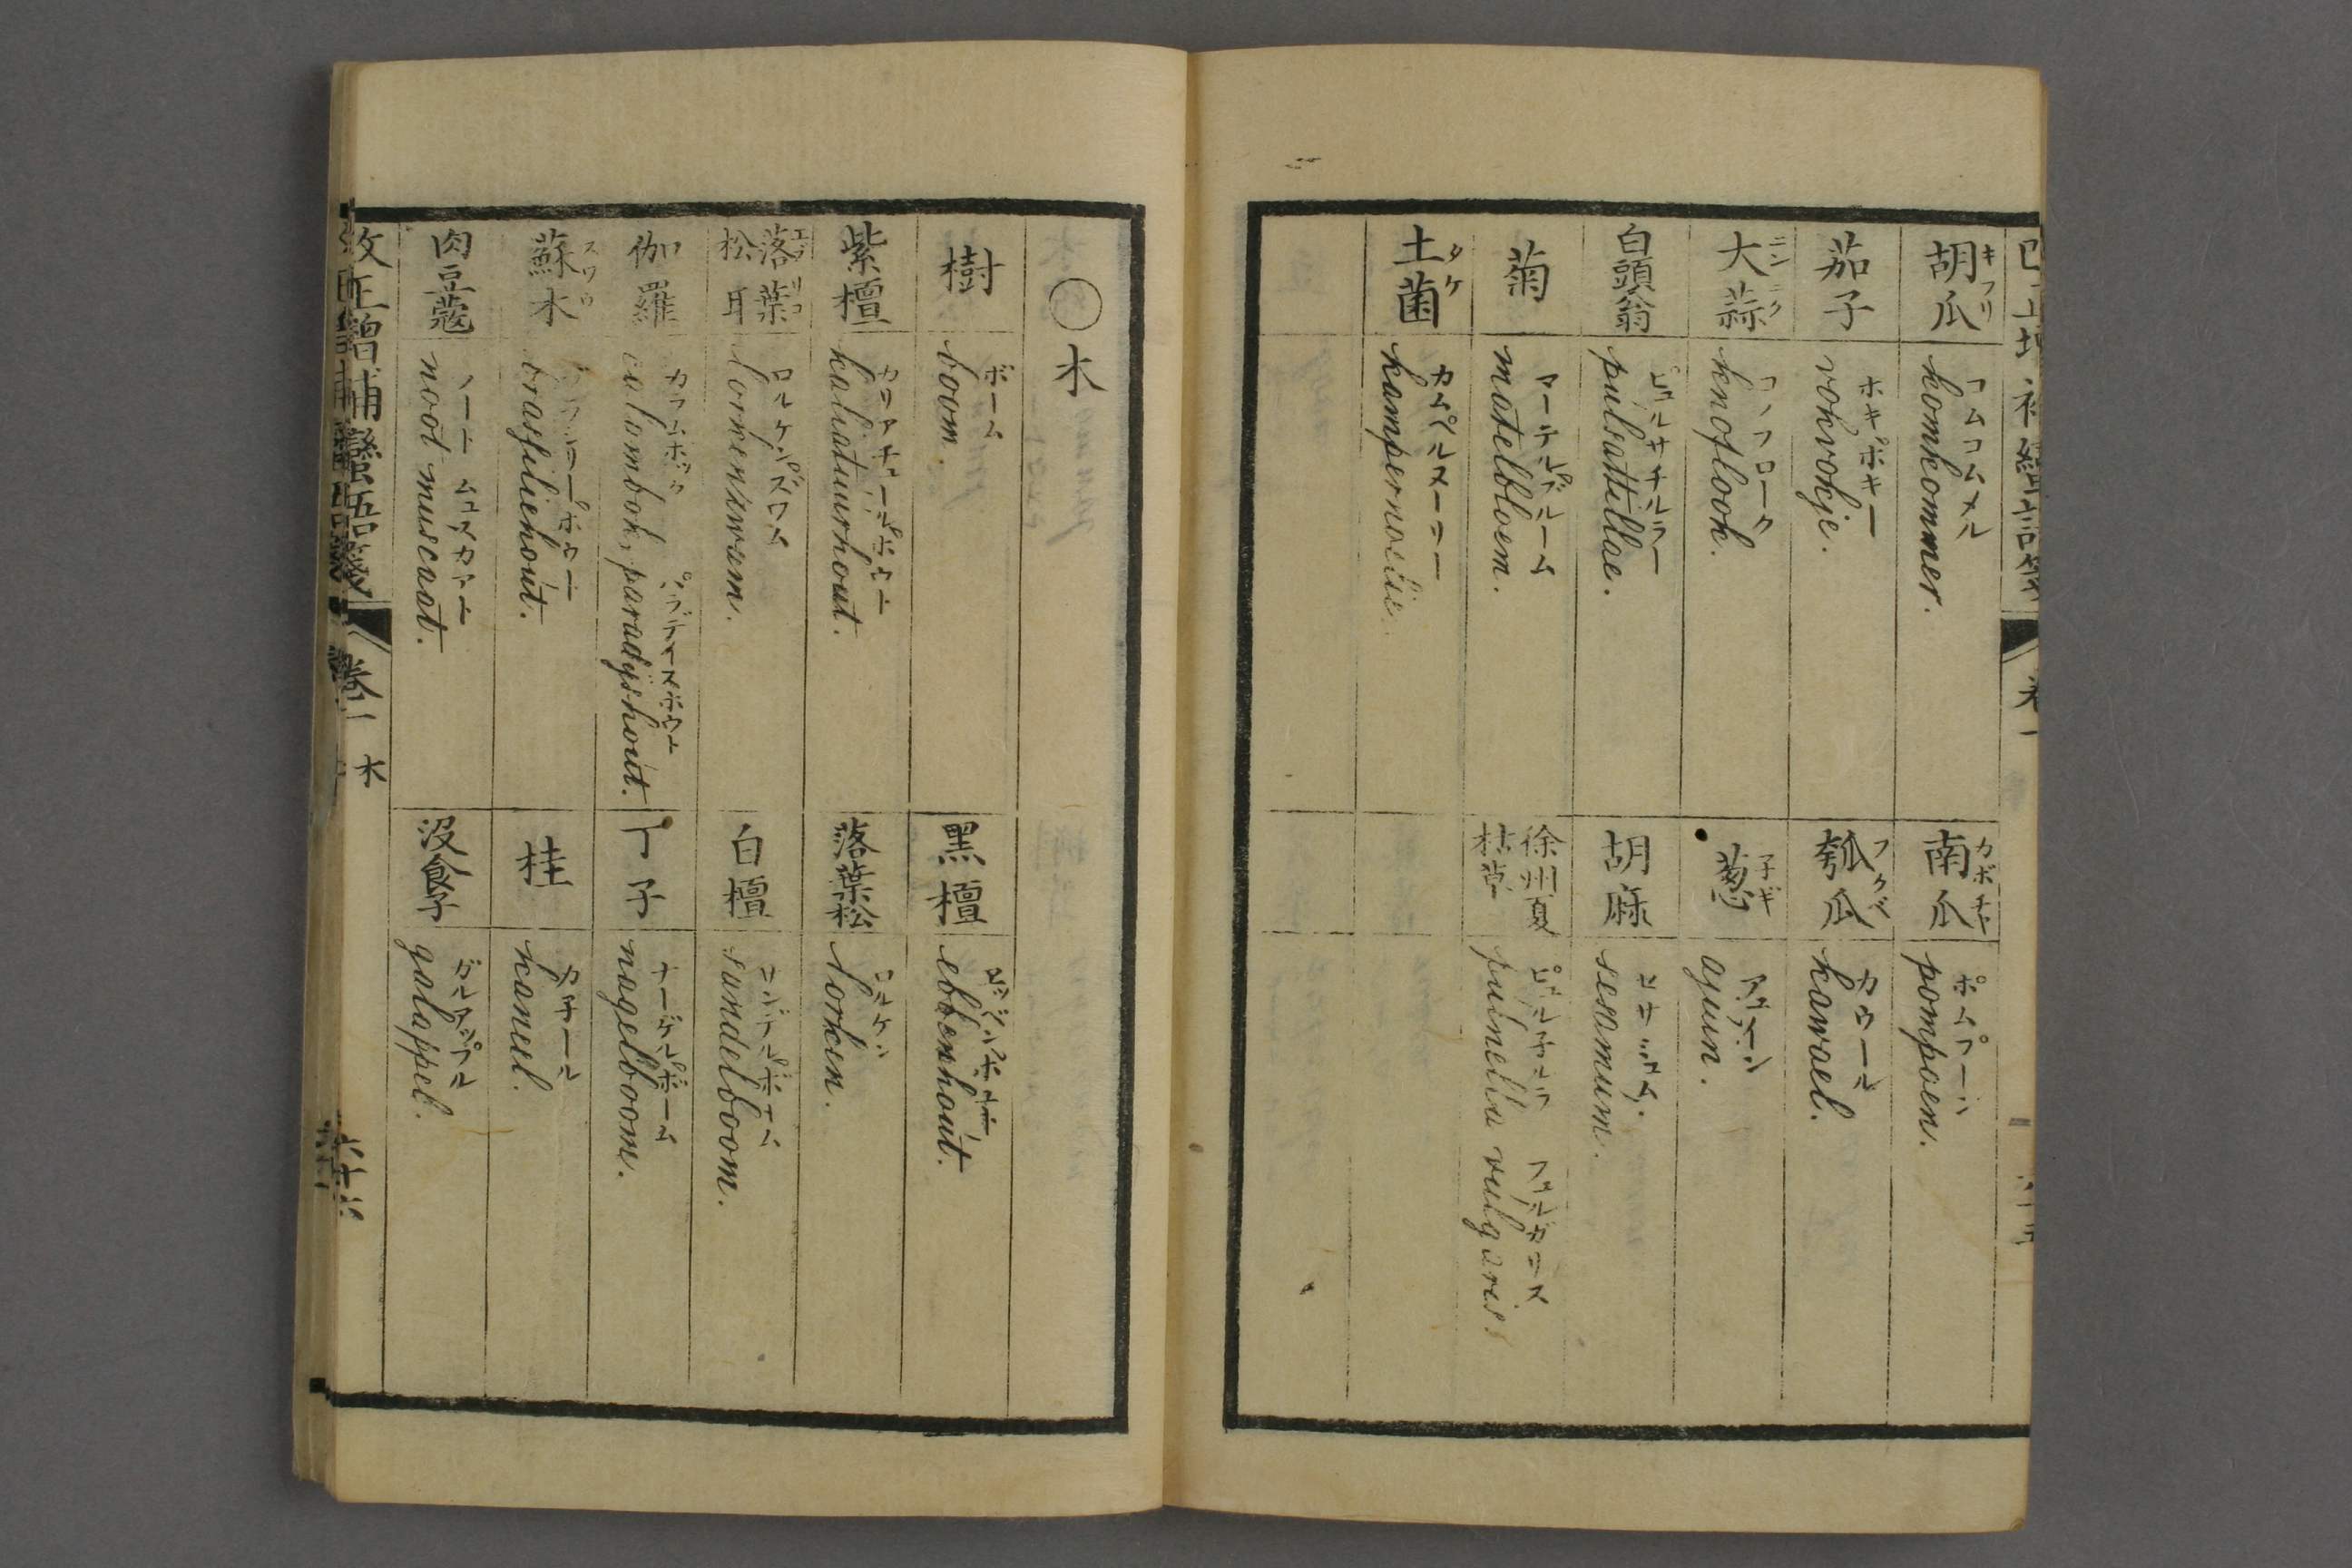 胡瓜 キフリ
コムコムメル
komkommer.
南瓜 カボチャ
ポムプーン
pompoen.
茄子
ホキホキー
vokvokje.
瓠瓜 フクベ
カウール
kawael.
大蒜 ニンニク
コノフローク
knoflook.
葱 子ギ
アユイン
ajuun.
白頭翁
ピュルサチルラー
pulsattillae.
胡麻
セサミュム
sesamum.
菊
マーテルブルーム
matelbloem.
徐州夏枯草
ピュル子ルラ フュルガリス
puinella vulgaris
土菌 タケ
カムペルヌーリー
kampernoelie.
〇木
樹
ボーム
boom.
黑檀
ebbenhout.
紫檀
カリアチュールホウト
kaliatuurhout.
落葉松
ロルケン
lorken.
落葉松耳 エブリコ
ロルケンズワム
lorkenzwam.
白檀
サンデルボーム
sandelboom.
伽羅
カラムボック パラデイースホウト
calambok, paradijshout.
丁子
ナーゲルボーム
nagelboom.
蘇木 スワウ
ブラシリーホウト
brasiliehout.
桂
カ子ール
kaneel.
肉豆蔻
ノート ムュスカアト
noot muscaat.
沒食子
ガルアップル
galappel.
改正增補蠻語箋 卷一 木